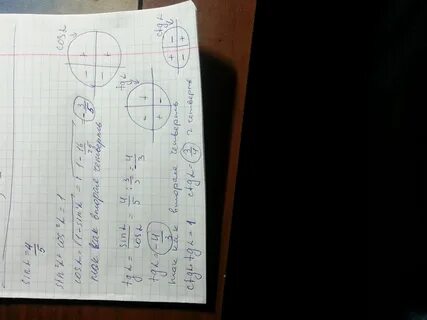 sin α = 4/5
sin²α + cos²α = 1
cos α = √1 - sin²α = √1 - 16/25 = -3/5
так как вторая четверть
cos α
+
-
-
+
tg α = sin α = 4/5 : 3/5 = 4/3
tg α
-
+
+
-
tg α = -4/3
так как вторая четверть
ctg α tg α = 1
ctg α = 3/4
2 четверть
ctg α
-
+
+
-